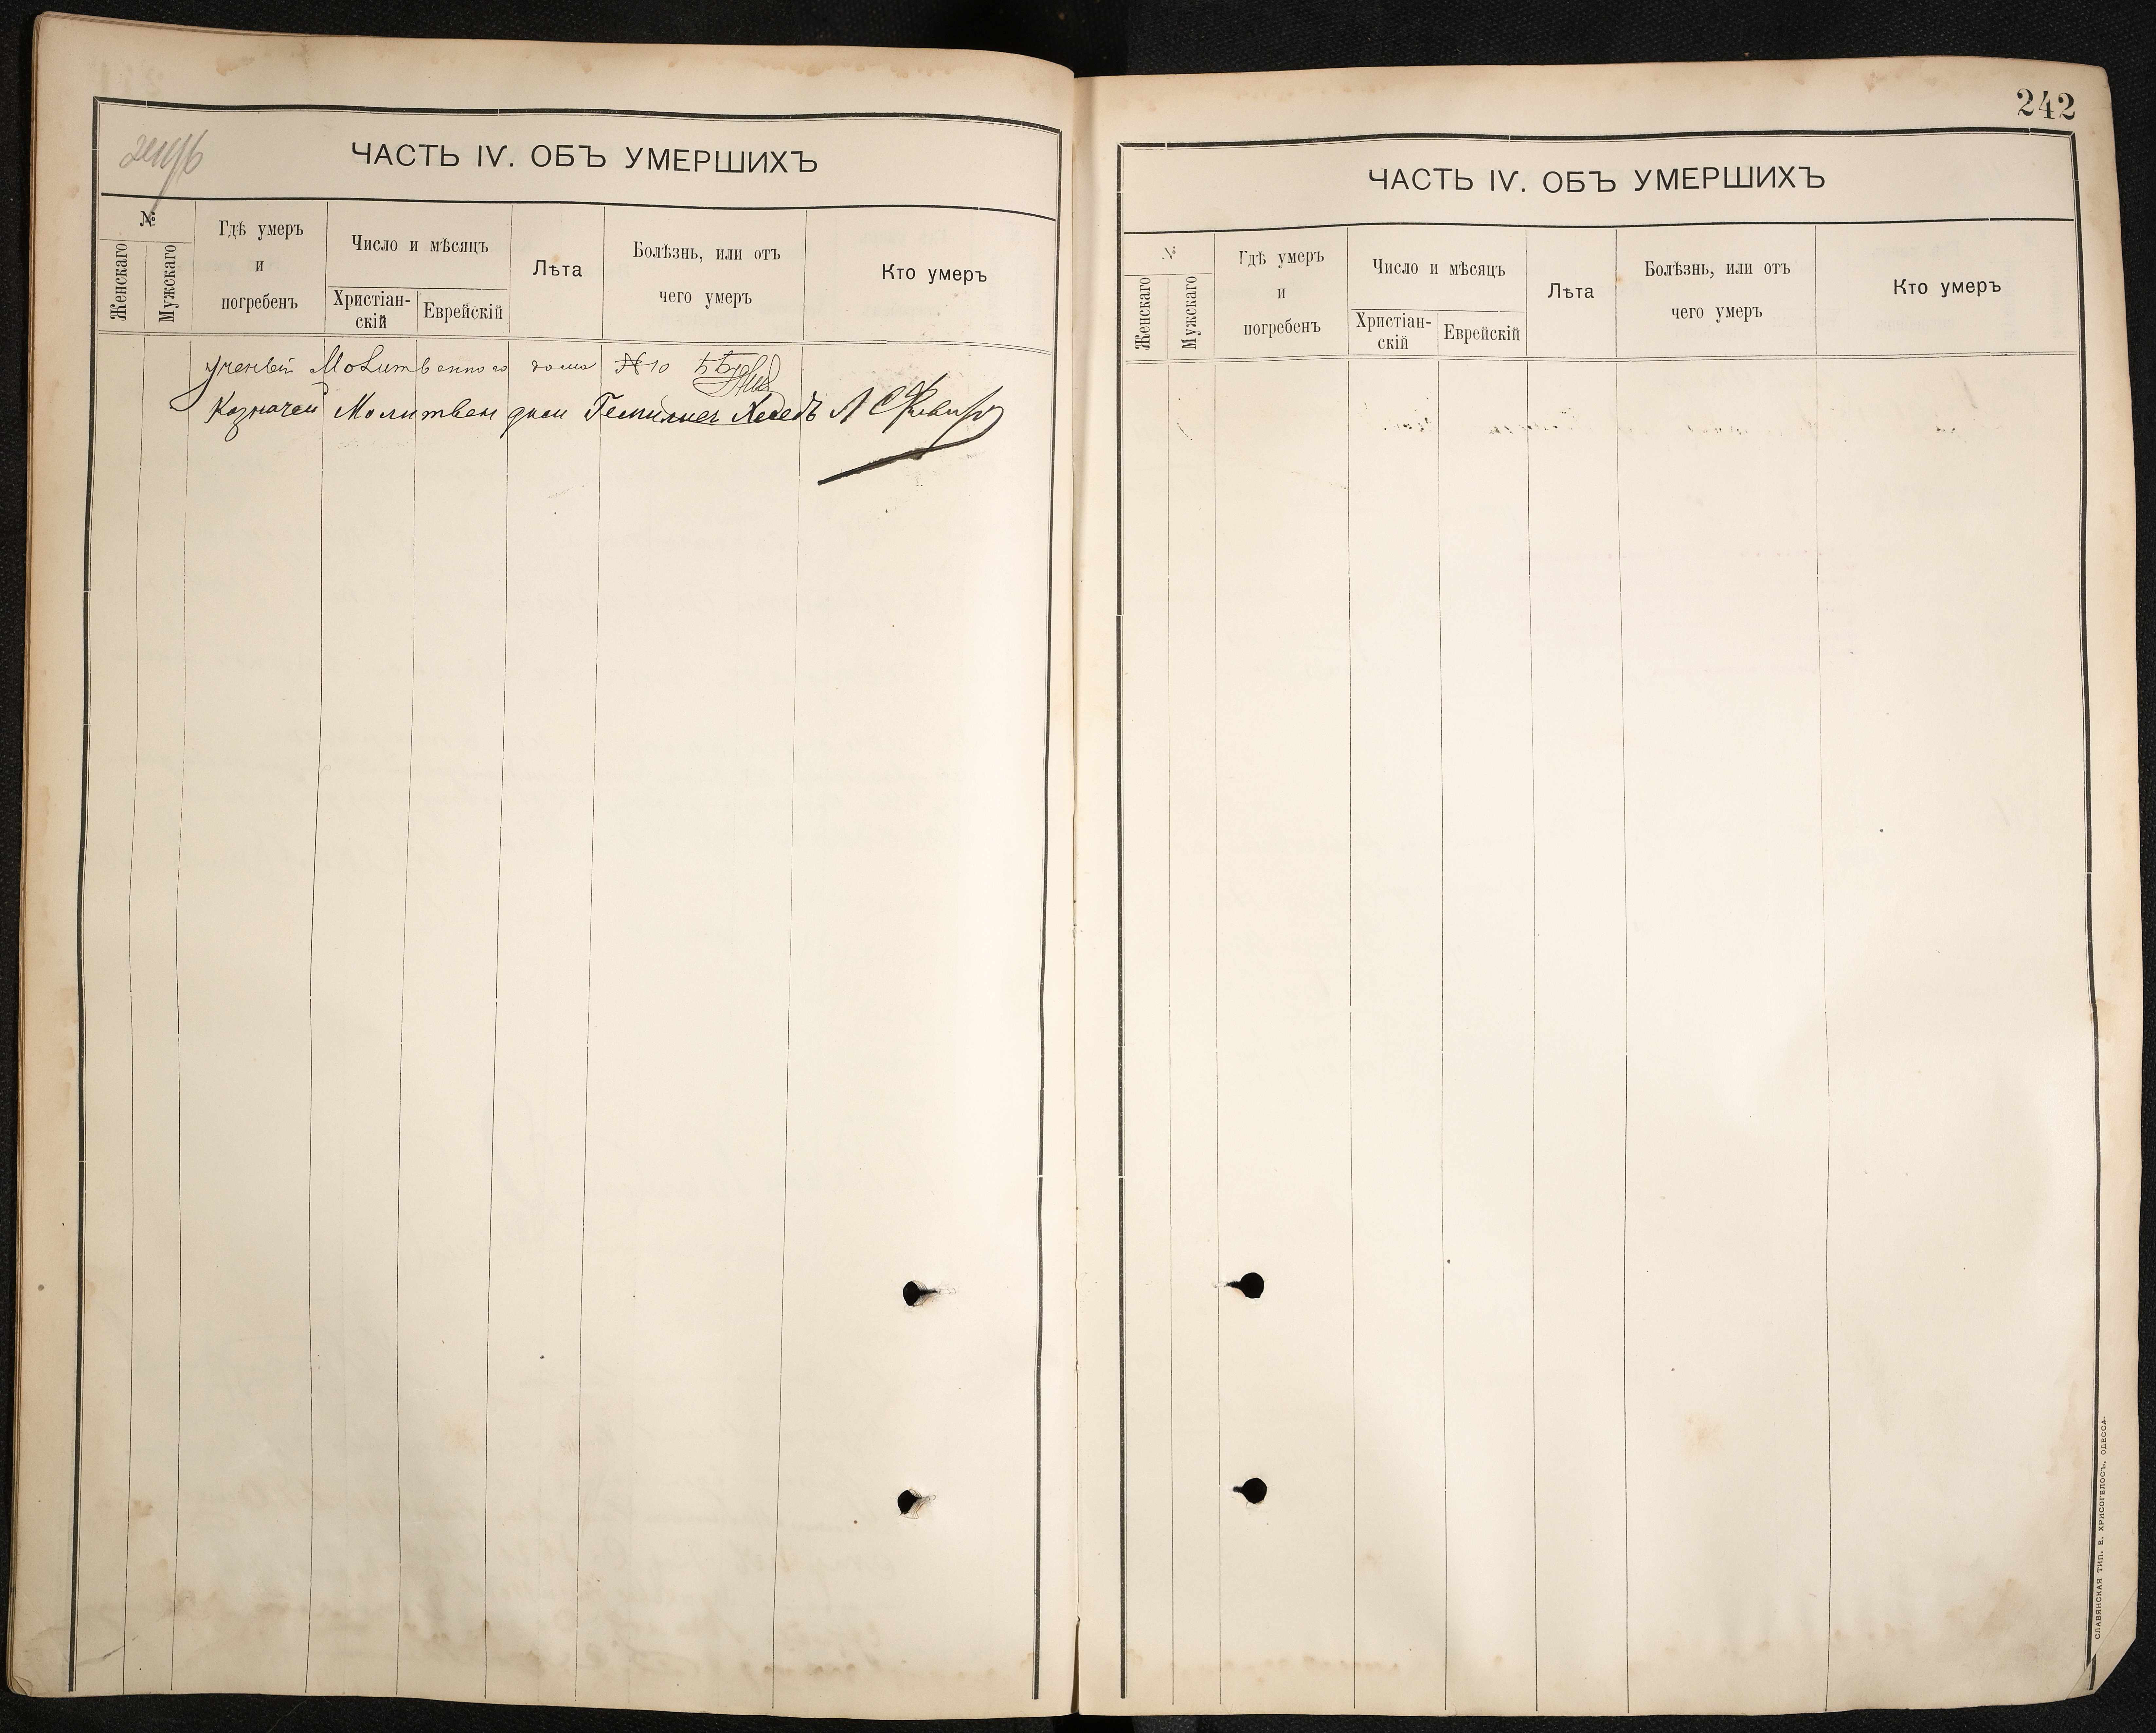 ЧАСТЬ IV. ОБЪ УМЕРШИХЪ
№
Женскаго
Мужскаго
Гдѣ умеръ
и
погребенъ
Число и мѣсяцъ
Христіан-
скій
Еврейскій
Лѣта
Болѣзнь, или отъ
чего умеръ
Кто умеръ
ученый Молитвенного дома № 10
Казначей Молитвен дом Гемилес Хеседъ
242
ЧАСТЬ IV. ОБЪ УМЕРШИХЪ
№
Женскаго
Мужскаго
Гдѣ умеръ
и
погребенъ
Число и мѣсяцъ
Христіан-
скій
Еврейскій
Лѣта
Болѣзнь, или отъ
чего умеръ
Кто умеръ
СЛАВЯНСКАЯ ТИП. Е. ХРИСОГЕЛОСЪ. ОДЕССА.